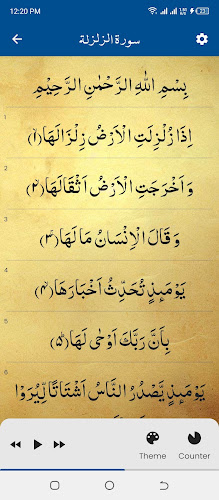 12:20 PM
سورة الزلزلة
بِسْمِ اللهِ الرَّحْمٰنِ الرَّحِيْمِ
1
اِذَا زُلْزِلَتِ الْاَرْضُ زِلْزَالَهَا ﴿۱﴾
2
وَ اَخْرَجَتِ الْاَرْضُ اَثْقَالَهَا ﴿۲﴾
3
وَ قَالَ الْاِنْسَانُ مَا لَهَا ﴿۳﴾
4
يَوْمَىِٕذٍ تُحَدِّثُ اَخْبَارَهَا ﴿۴﴾
5
بِاَنَّ رَبَّكَ اَوْحٰى لَهَا ﴿۵﴾
6
يَوْمَىِٕذٍ يَّصْدُرُ النَّاسُ اَشْتَاتًا لِّيُرَوْا
Theme Counter